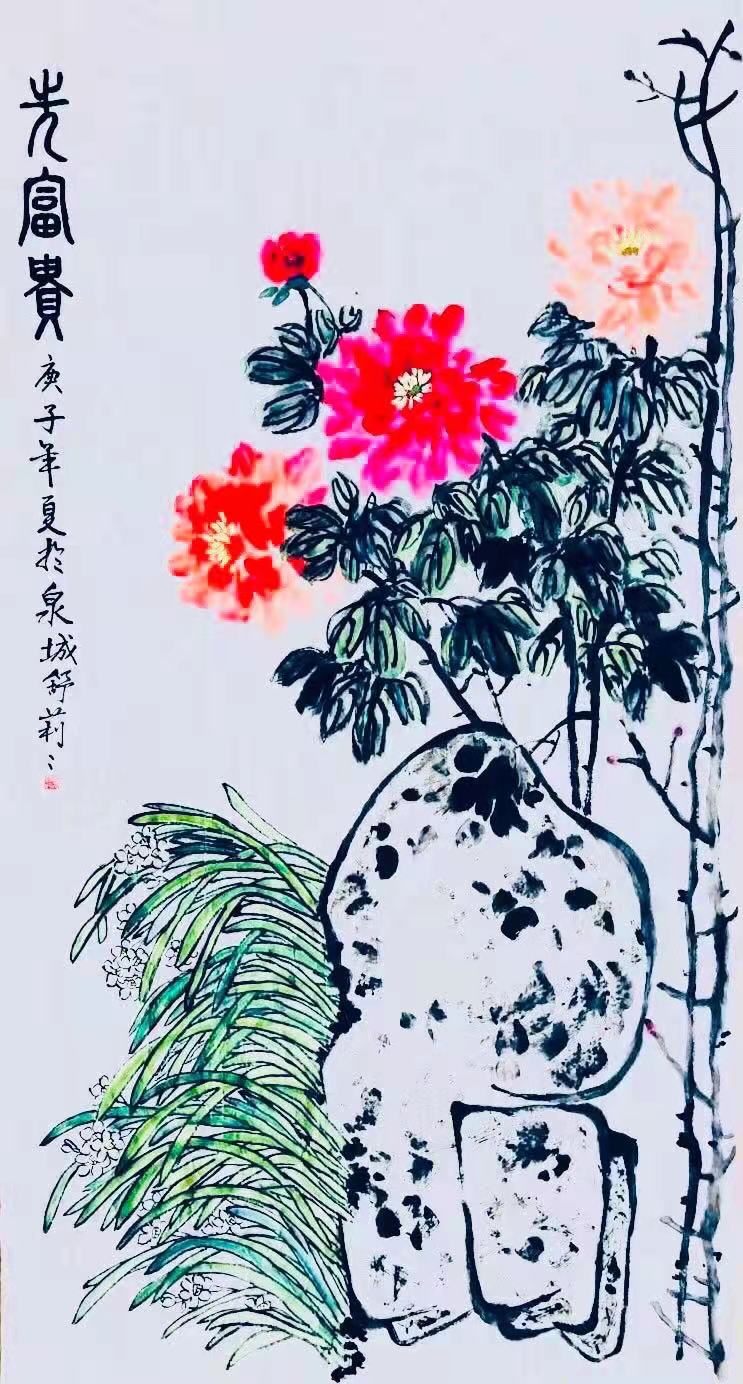 先富貴
庚子年夏於泉城舒莉〻